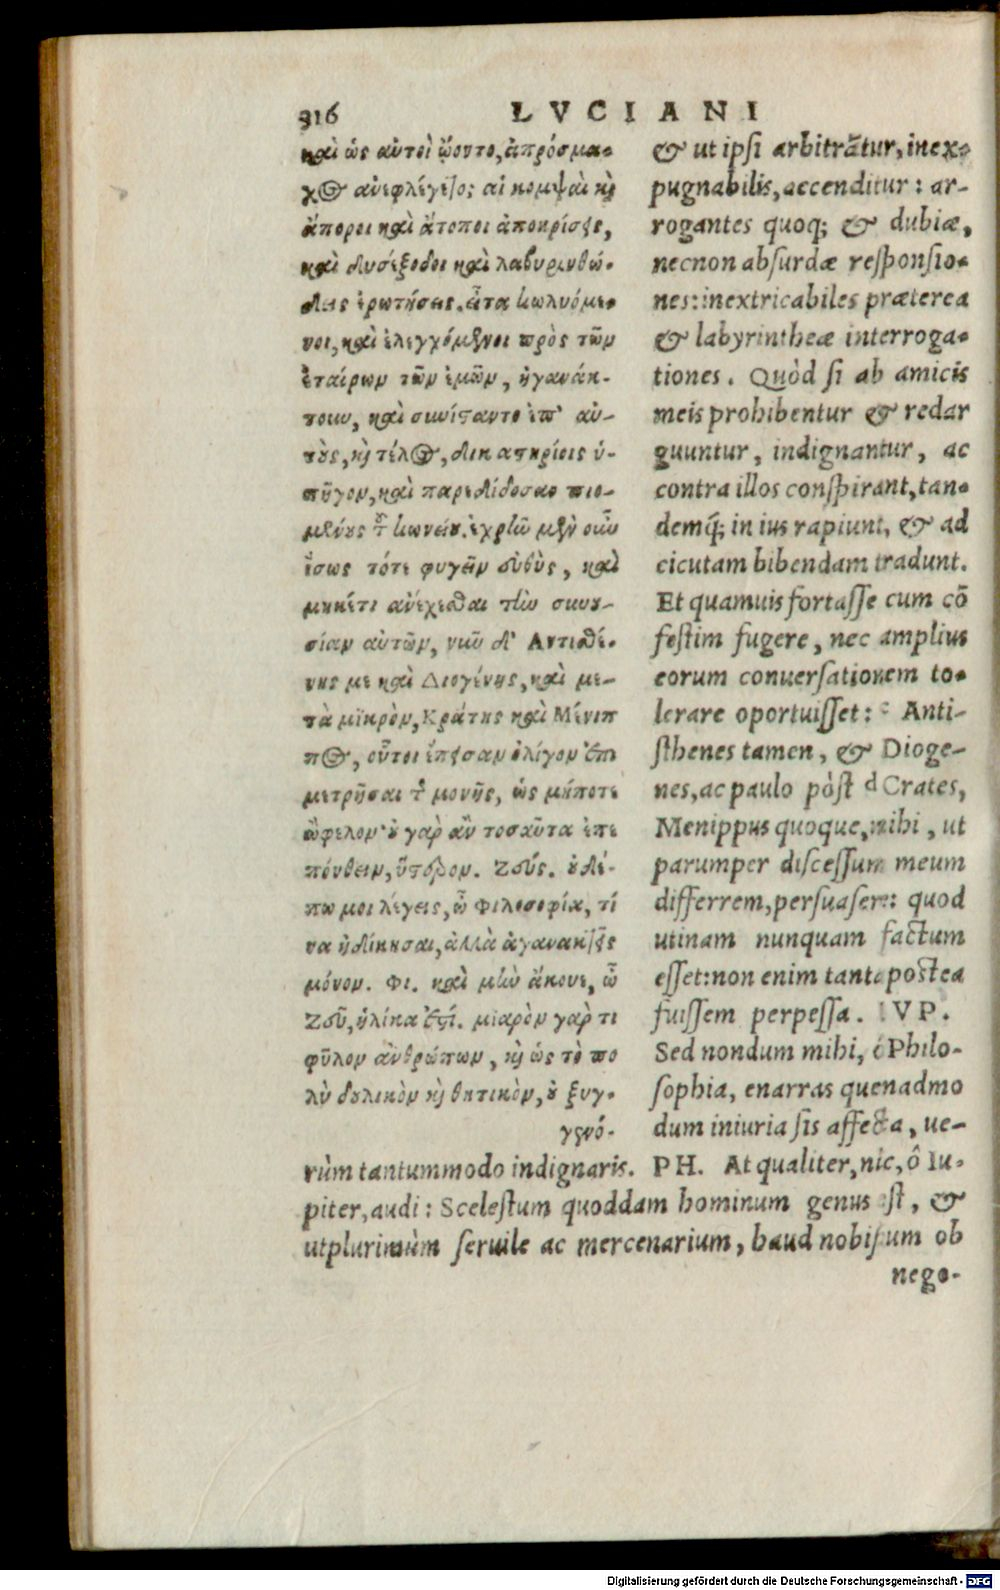 316 LVCIANI
καὶ ὡς αὐτοὶ ᾤοντο, ἀπρόσμα-
χος ἀνεφλέγετο; αἱ κομψαὶ κὶ
ἄποροι καὶ ἄτοποι ἀποκρίσεις,
καὶ δυσέξοδοι καὶ λαβυρινθώ-
δεις ἐρωτήσεις. εἶτα κωλυόμε-
νοι, καὶ ἐλεγχόμενοι πρὸς τῶν
ἑταίρων τῶν ἐμῶν, ἠγανάκ-
τουν, καὶ συνίσταντο ἐπ' αὐ-
τοὺς, κὶ τέλος, δικαστηρίοις ὑ-
πῆγον, καὶ παρεδίδοσαν πιο-
μένους τοῦ κωνείου. ἐχρῆν μὲν οὖν
ἴσως τότε φυγεῖν εὐθὺς, καὶ
μηκέτι ἀνέχεσθαι τὴν συνου-
σίαν αὐτῶν, νῦν δ' Αντισθέ-
νης με καὶ Διογένης, καὶ με-
τὰ μικρὸν, Κράτης καὶ Μένιπ
πος, οὗτοι ἔπεισαν ὀλίγον ἐπι
μετρῆσαι τῆς μονῆς, ὡς μήποτε
ὤφελον· οὐ γὰρ ἂν τοσαῦτα ἐπε
πόνθειν, ὕστερον. Ζεύς. οὐδέ-
πω μοι λέγεις, ὦ Φιλοσοφία, τί
να ἠδίκησαι, ἀλλὰ ἀγανακτεῖς
μόνον. Φι. καὶ μὴν ἄκουε, ὦ
Ζεῦ, ἡλίκα ἐστί. μιαρὸν γάρ τι
φῦλον ἀνθρώπων, κὶ ὡς τὸ πο
λὺ δουλικὸν κὶ θητικὸν, οὐ ξυγ-
γενό-
& ut ipsi arbitrãtur, inex-
pugnabilis, accenditur: ar-
rogantes quoq; & dubiæ,
necnon absurdæ responsio-
nes: inextricabiles præterea
& labyrintheæ interroga-
tiones. Quòd si ab amicis
meis prohibentur & redar
guuntur, indignantur, ac
contra illos conspirant, tan-
demq́; in ius rapiunt, & ad
cicutam bibendam tradunt.
Et quamuis fortasse cum cō
festim fugere, nec amplius
eorum conuersationem to-
lerare oportuisset: c Anti-
sthenes tamen, & Dioge-
nes, ac paulo pòst d Crates,
Menippus quoque, mihi, ut
parumper discessum meum
differrem, persuasere: quod
utinam nunquam factum
esset: non enim tanta postea
fuissem perpessa. IVP.
Sed nondum mihi, ô Philo-
sophia, enarras quenadmo
dum iniuria sis affecta, ue-
rùm tantummodo indignaris. PH. At qualiter, nic, ô Iu-
piter, audi: Scelestum quoddam hominum genus est, &
utplurimùm seruile ac mercenarium, haud nobiscum ob
nego-
Digitalisierung gefördert durch die Deutsche Forschungsgemeinschaft - DFG